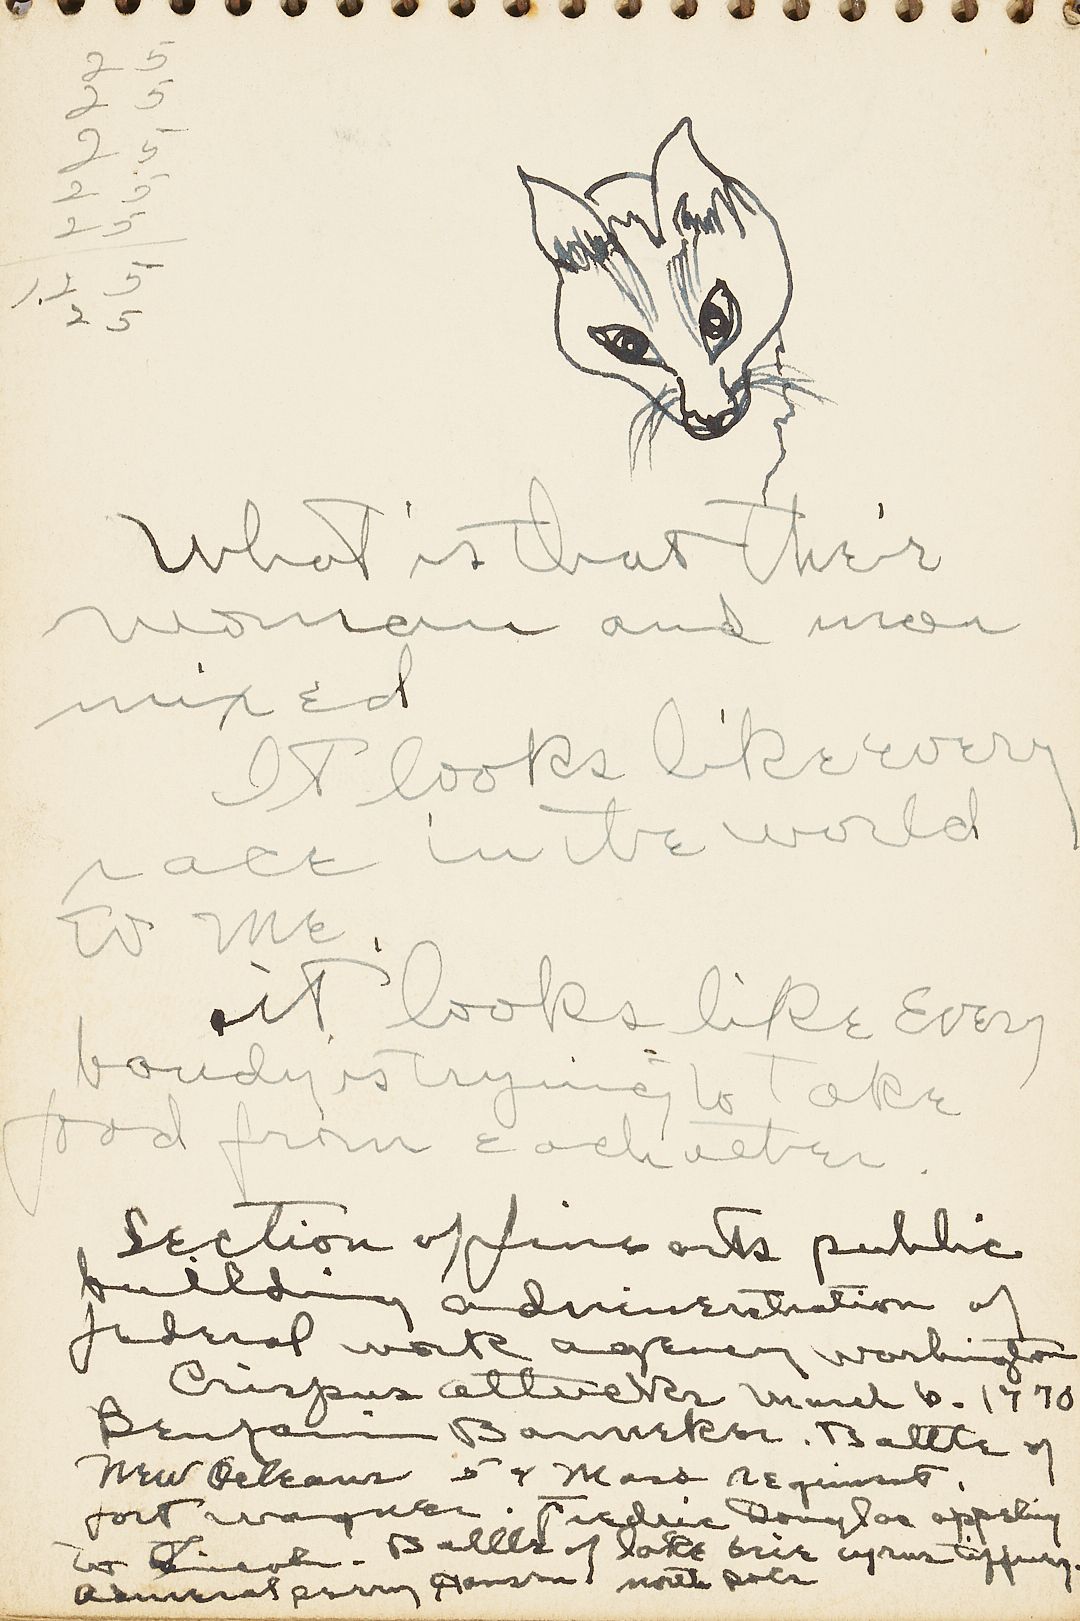 25
25
25
25
25
1.25
25
What is that their
woman and man
mixed
It looks like every
race in the world
to me.
it looks like Every
boudy is trying to Take
food from each other.
Section of fine arts public
building adminerstration of
federal work agency washington
Crispus attucks March 6. 1770
Benjamin Banneker. Battle of
New Orleans 54 Mass regiment.
fort wagner. Fredric Douglas appeling
to Lincoln. Battle of lake erie cyrus tiffury.
Admeral perry Hanson. north pole